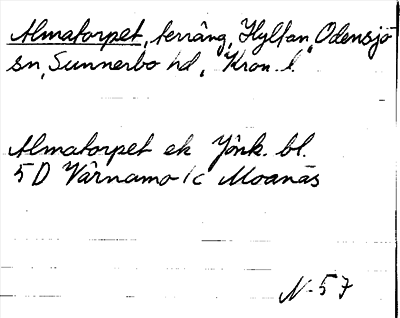 Almatorpet, terräng, Hyltan, Odensjö
sn, Sunnerbo hd, Kron. l.
Almatorpet ek Jönk. bl.
5D Värnamo 1c Moanäs
N-57